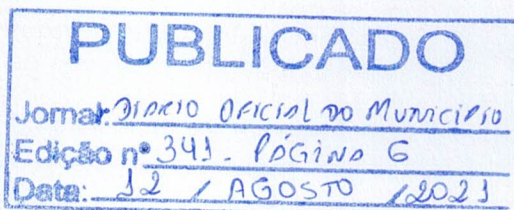 PUBLICADO
Jornal: DIÁRIO OFICIAL DO MUNICÍPIO
Edição nº 341 - PÁGINA 6
Data: 12 / AGOSTO / 2021